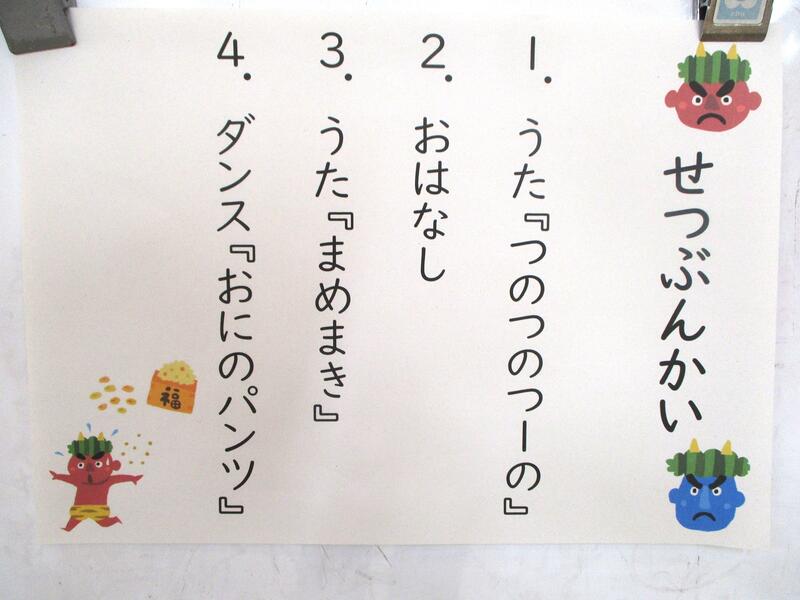 せつぶんかい
1. うた『つのつのつーの』
2. おはなし
3. うた『まめまき』
4. ダンス『おにのパンツ』
福